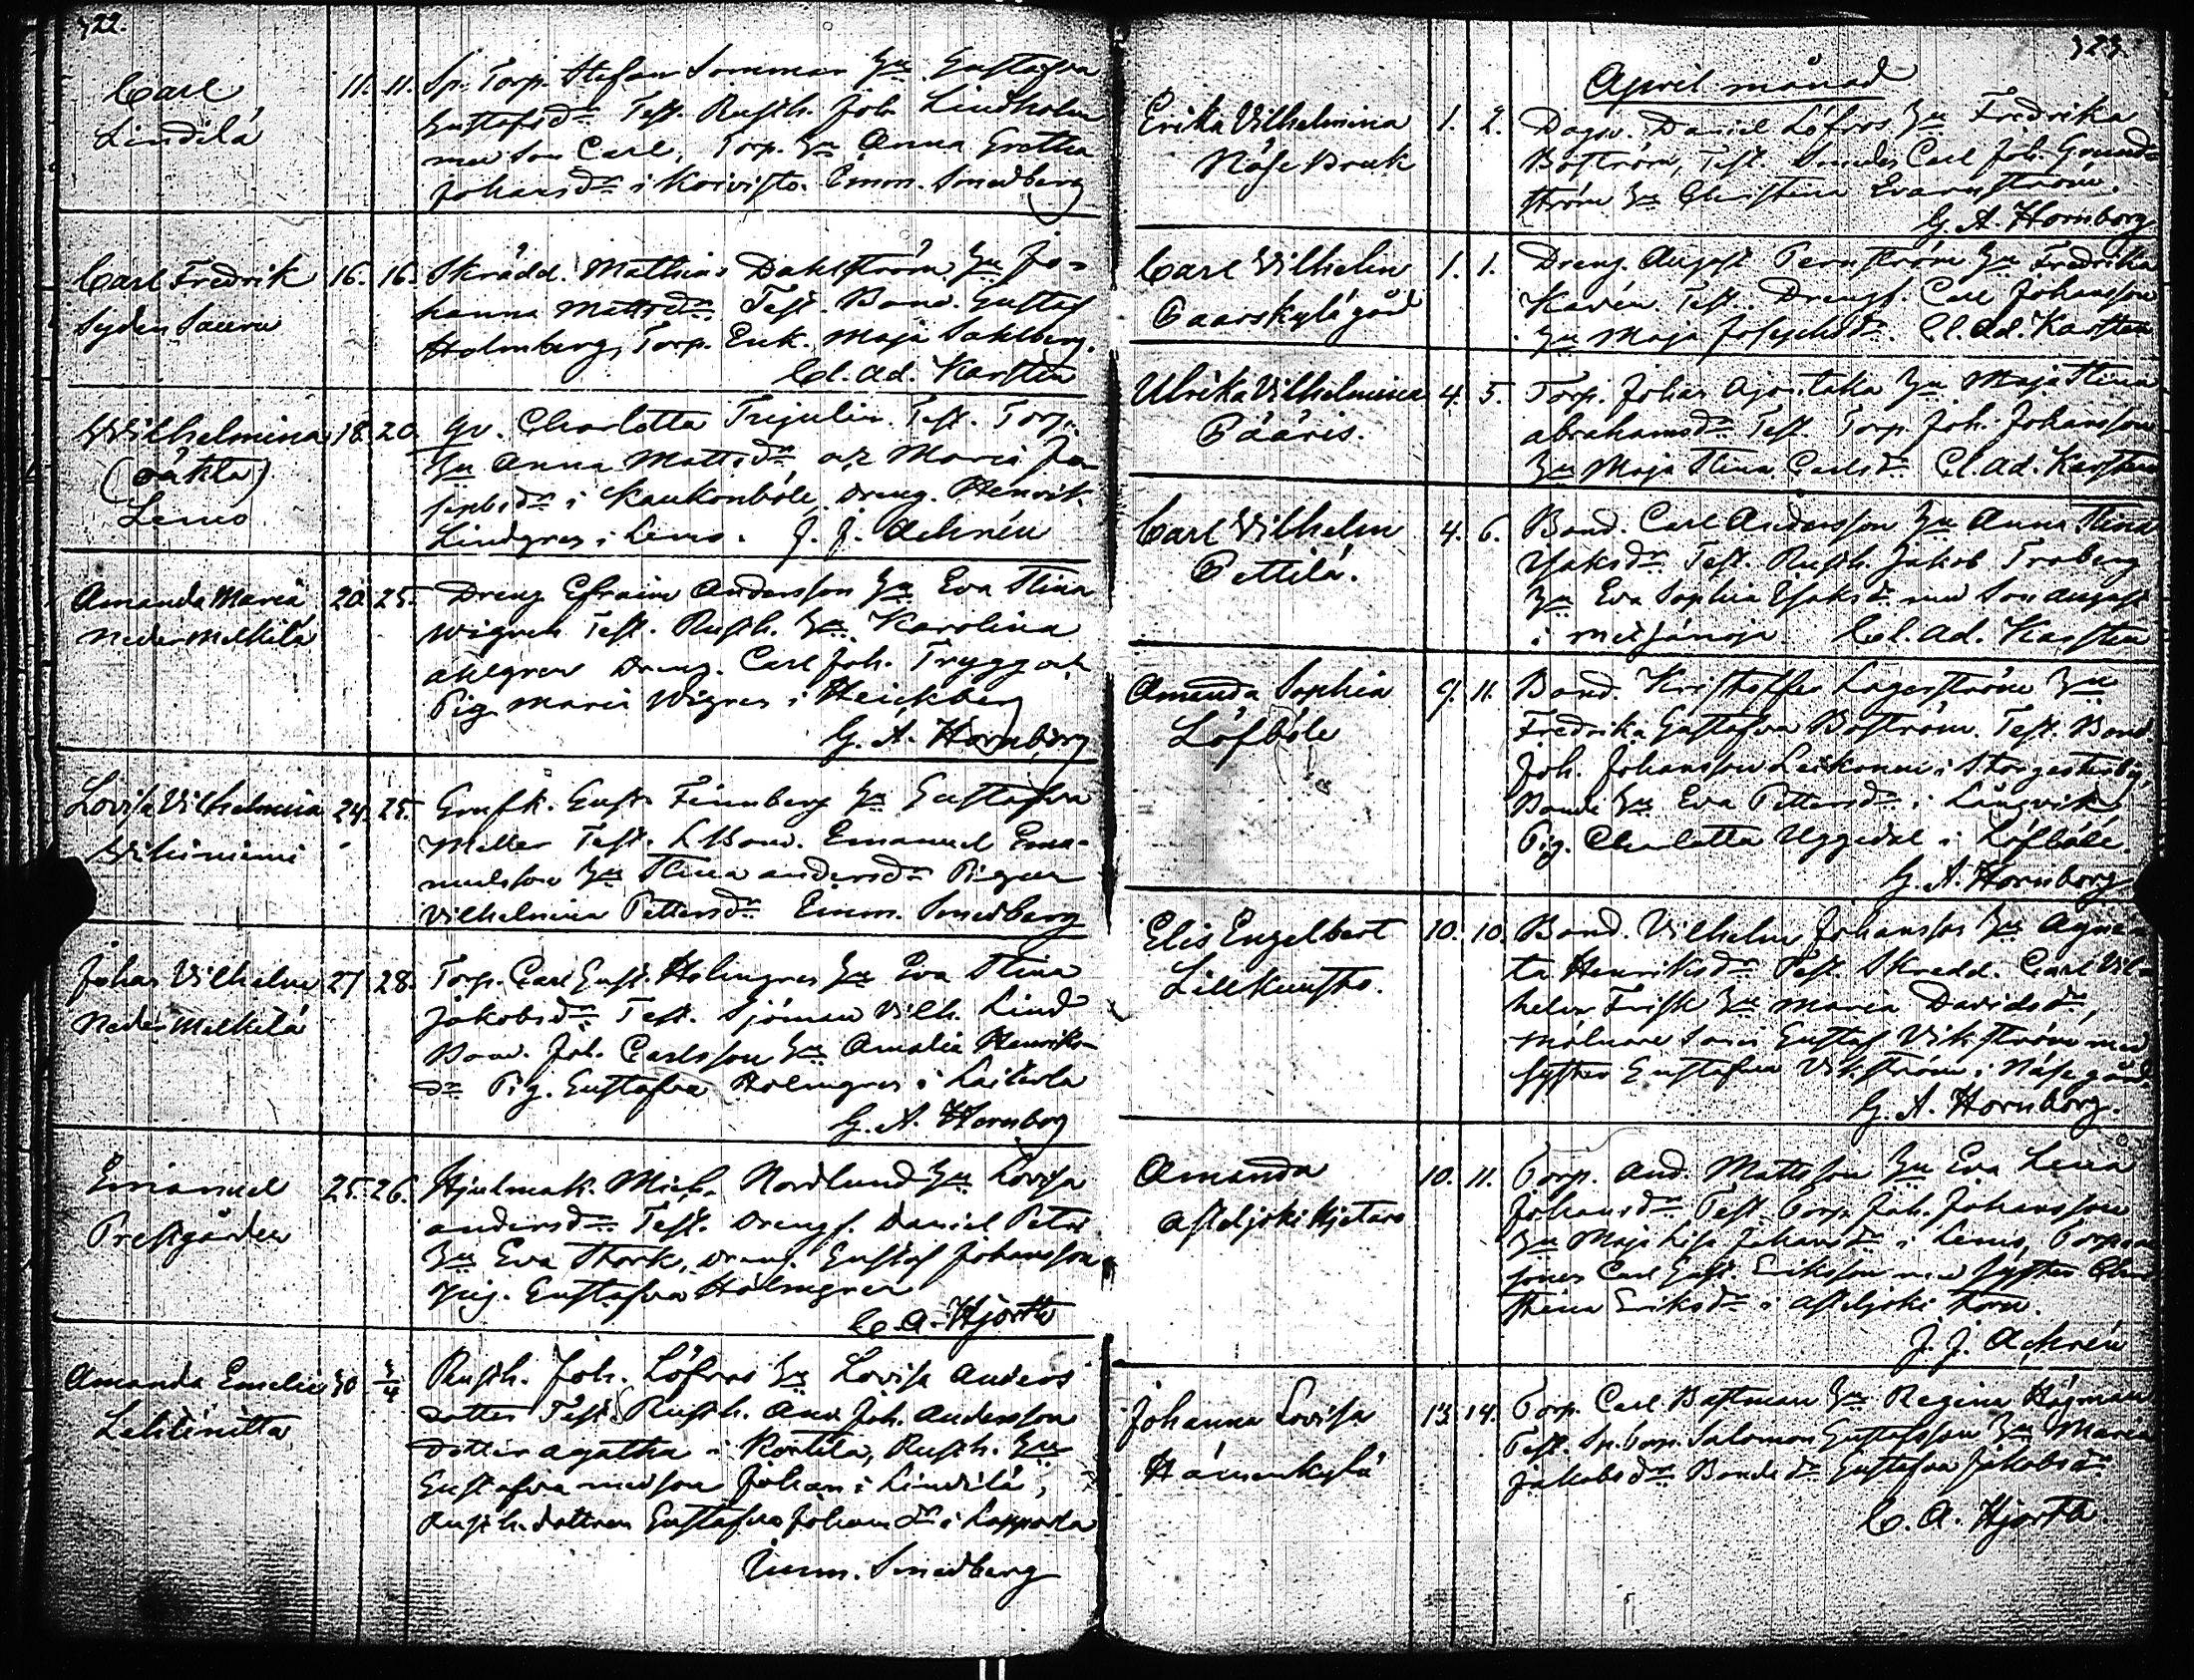 322.
Carl 11. 11. Sp. Torp. Stefan Sommar Hu Gustafva
Lindilä Gustafsdr Test. Rusth. Joh. Lindholm
med son Carl, Torp. Hu Anna Gretha
Johansdr i Koivisto. Emm. Smedberg
Carl Fredrik 16. 16. Skrädd. Mathias Dahlström Hu Jo-
hanna Mattsdr. Test. Bond. Gustaf
Holmberg, Torp. Enk. Maja Sahlberg.
Cl. Ad. Karsten
Wilhelmina 18. 20. Qv. Charlotta Trejulin. Test. Torp.
(oäkta) Hu Anna Mattsdr, och Maria Jo-
sephsdr i Kaukonböle, Dreng. Henrik
Lemo Lindgren i Lemo. J. J. Achrén
Amanda Maria 20. 25. Dreng Efraim Andersson Hu Eva Stina
Neder Melkilä Wigren Test. Rusth. Hu Karolina
Ahlgren Dreng. Carl Joh. Trygg och
Pig. Maria Wigren i Heickberg
G. A. Hornborg
Lovisa Vilhelmina 24. 25. Gust. Finnberg Hu Gustafva
Viiliniemi Meller Test. Bond. Emanuel Ema-
nuelsson Hu Stina Andersdr Pigan
Vilhelmina Pettersdr Emm. Smedberg
Johan Vilhelm 27. 28. Torp. Carl Gust. Holmgren Hu Eva Stina
Neder Melkilä Jakobsdr Test. Sjöman Vilh. Lind
Bond. Joh. Carlsson Hu Amalia Henriks-
dr Pig. Gustafva Holmgren i
G. A. Hornborg
Emanuel 25. 26. Hjulmak. Mich. Nordlund Hu Lovisa
Prestgården Andersdr Test. Drengs. Daniel Petri
Hu Eva Stork, Dreng. Gustaf Johansson
Pig. Gustafva Holmgren
C. A. Hjorth
Amanda Emelie 30 3/4 Rusth. Joh. Löfroos Hu Lovisa Anders
dotter Test. Rusth. And. Joh. Andersson
dotter Agatha i Kortila, Rusth. Hu
Gustafva med son Johan i Lindilä,
Rusth. dottren Gustafva Johansdr i
Emm. Smedberg
323.
April månad
Erika Vilhelmina 1. 2. Dagsv. Daniel Löfroos Hu Fredrika
Näse Bruk Boström, Test. Smeden Carl Joh. Grund-
ström Hu Christina Evarnström.
G. A. Hornborg
Carl Vilhelm 1. 1. Dreng. August Pernström Hu Fredrika
Paarskylä gård Kavén. Test. Drengs. Carl Johansson
Hu Maja Josephsdr. Cl. Ad. Karsten
Ulrika Vilhelmina 4. 5. Torp. Johan Ajostaka Hu Maja Stina
Pääris. Abrahamsdr Test. Torp. Joh. Johansson
Hu Maja Stina Carlsdr Cl. Ad. Karsten
Carl Vilhelm 4. 6. Bond. Carl Andersson Hu Anna Stina
Pettilä. Isaksdr Test. Rusth. Jakob Troberg
Hu Eva Sophia Isaksdr med Son August
i Metsänoja Cl. Ad. Karsten
Amanda Sophia 9. 11. Bond. Kristoffer Lagerström Hu
Löfböle Fredrika Gustafva Boström. Test. Bond
Joh. Johansson Leikonen i Storgesterby,
Bonde Hu Eva Pettersdr i Långvik
Pig. Charlotta Uggedal i Löfböle
G. A. Hornborg
Elis Engelbert 10. 10. Bond. Vilhelm Johansson Hu Agne-
Lill Kuusto. ta Henriksdr Test. Skredd. Carl Vil-
helm Frisk Hu Maria Davidsdr,
Mölnare Gustaf Vikström med
Syster Gustafva Vikström i Näse gård
G. A. Hornborg.
Amanda 10. 11. Torp. And. Mattsson Hu Eva Lena
Asteljoki Johansdr Test. Torp. Joh. Johansson
Hu Maja Lisa Johansdr i Lemo, Torpare
sonen Carl Gust. Eriksson med Syster Chri
stina Eriksdr i Asteljoki torp.
J. J. Achrén
Johanna Lovisa 13. 14. Torp. Carl Bastman Hu Regina Högman
Hämenkylä Test. Sp. Torp. Salomon Gustafsson Hu Maria
Jakobsdr Bonde dr Gustafva Jakobsdr
C. A. Hjorth.